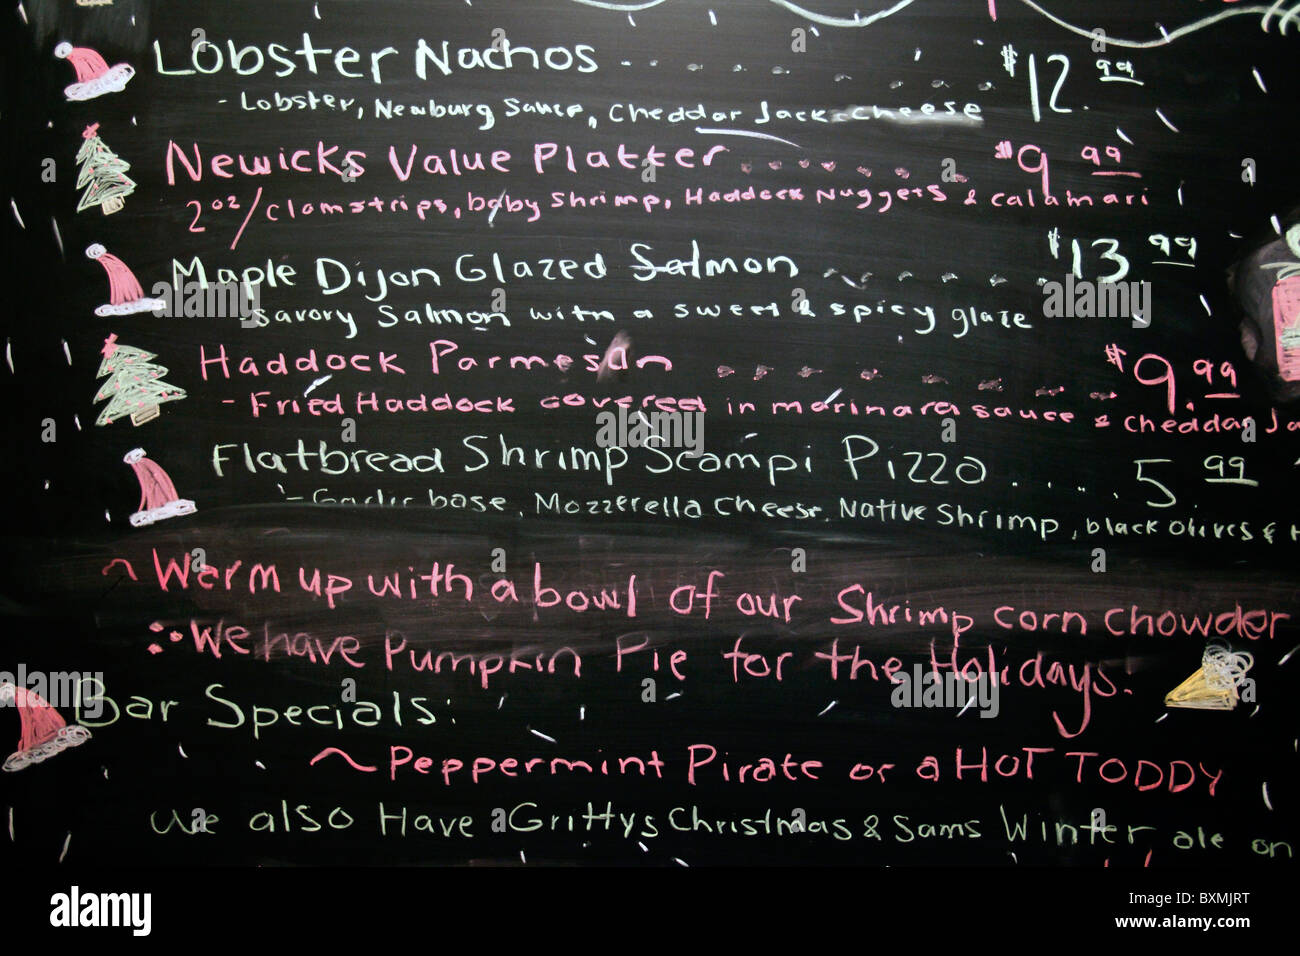 Lobster Nachos ........... $12.99
- Lobster, Newburg Sauce, Cheddar Jack cheese
Newicks Value Platter .......... $9.99
2 oz/clamstrips, baby shrimp, Haddock Nuggets & calamari
Maple Dijon Glazed Salmon ....... $13.99
- savory Salmon with a sweet & spicy glaze
Haddock Parmesan ......... $9.99
- Fried Haddock covered in marinara sauce & cheddar Ja
Flatbread Shrimp Scampi Pizza ..... 5.99
- Garlic base, Mozzerella Cheese, Native Shrimp, black olives &
~ Warm up with a bowl of our Shrimp corn chowder
We have Pumpkin Pie for the Holidays!
Bar Specials:
~ Peppermint Pirate or a HOT TODDY
We also Have Grittys Christmas & Sams Winter ale on
alamy
Image ID: BXMJRT
www.alamy.com